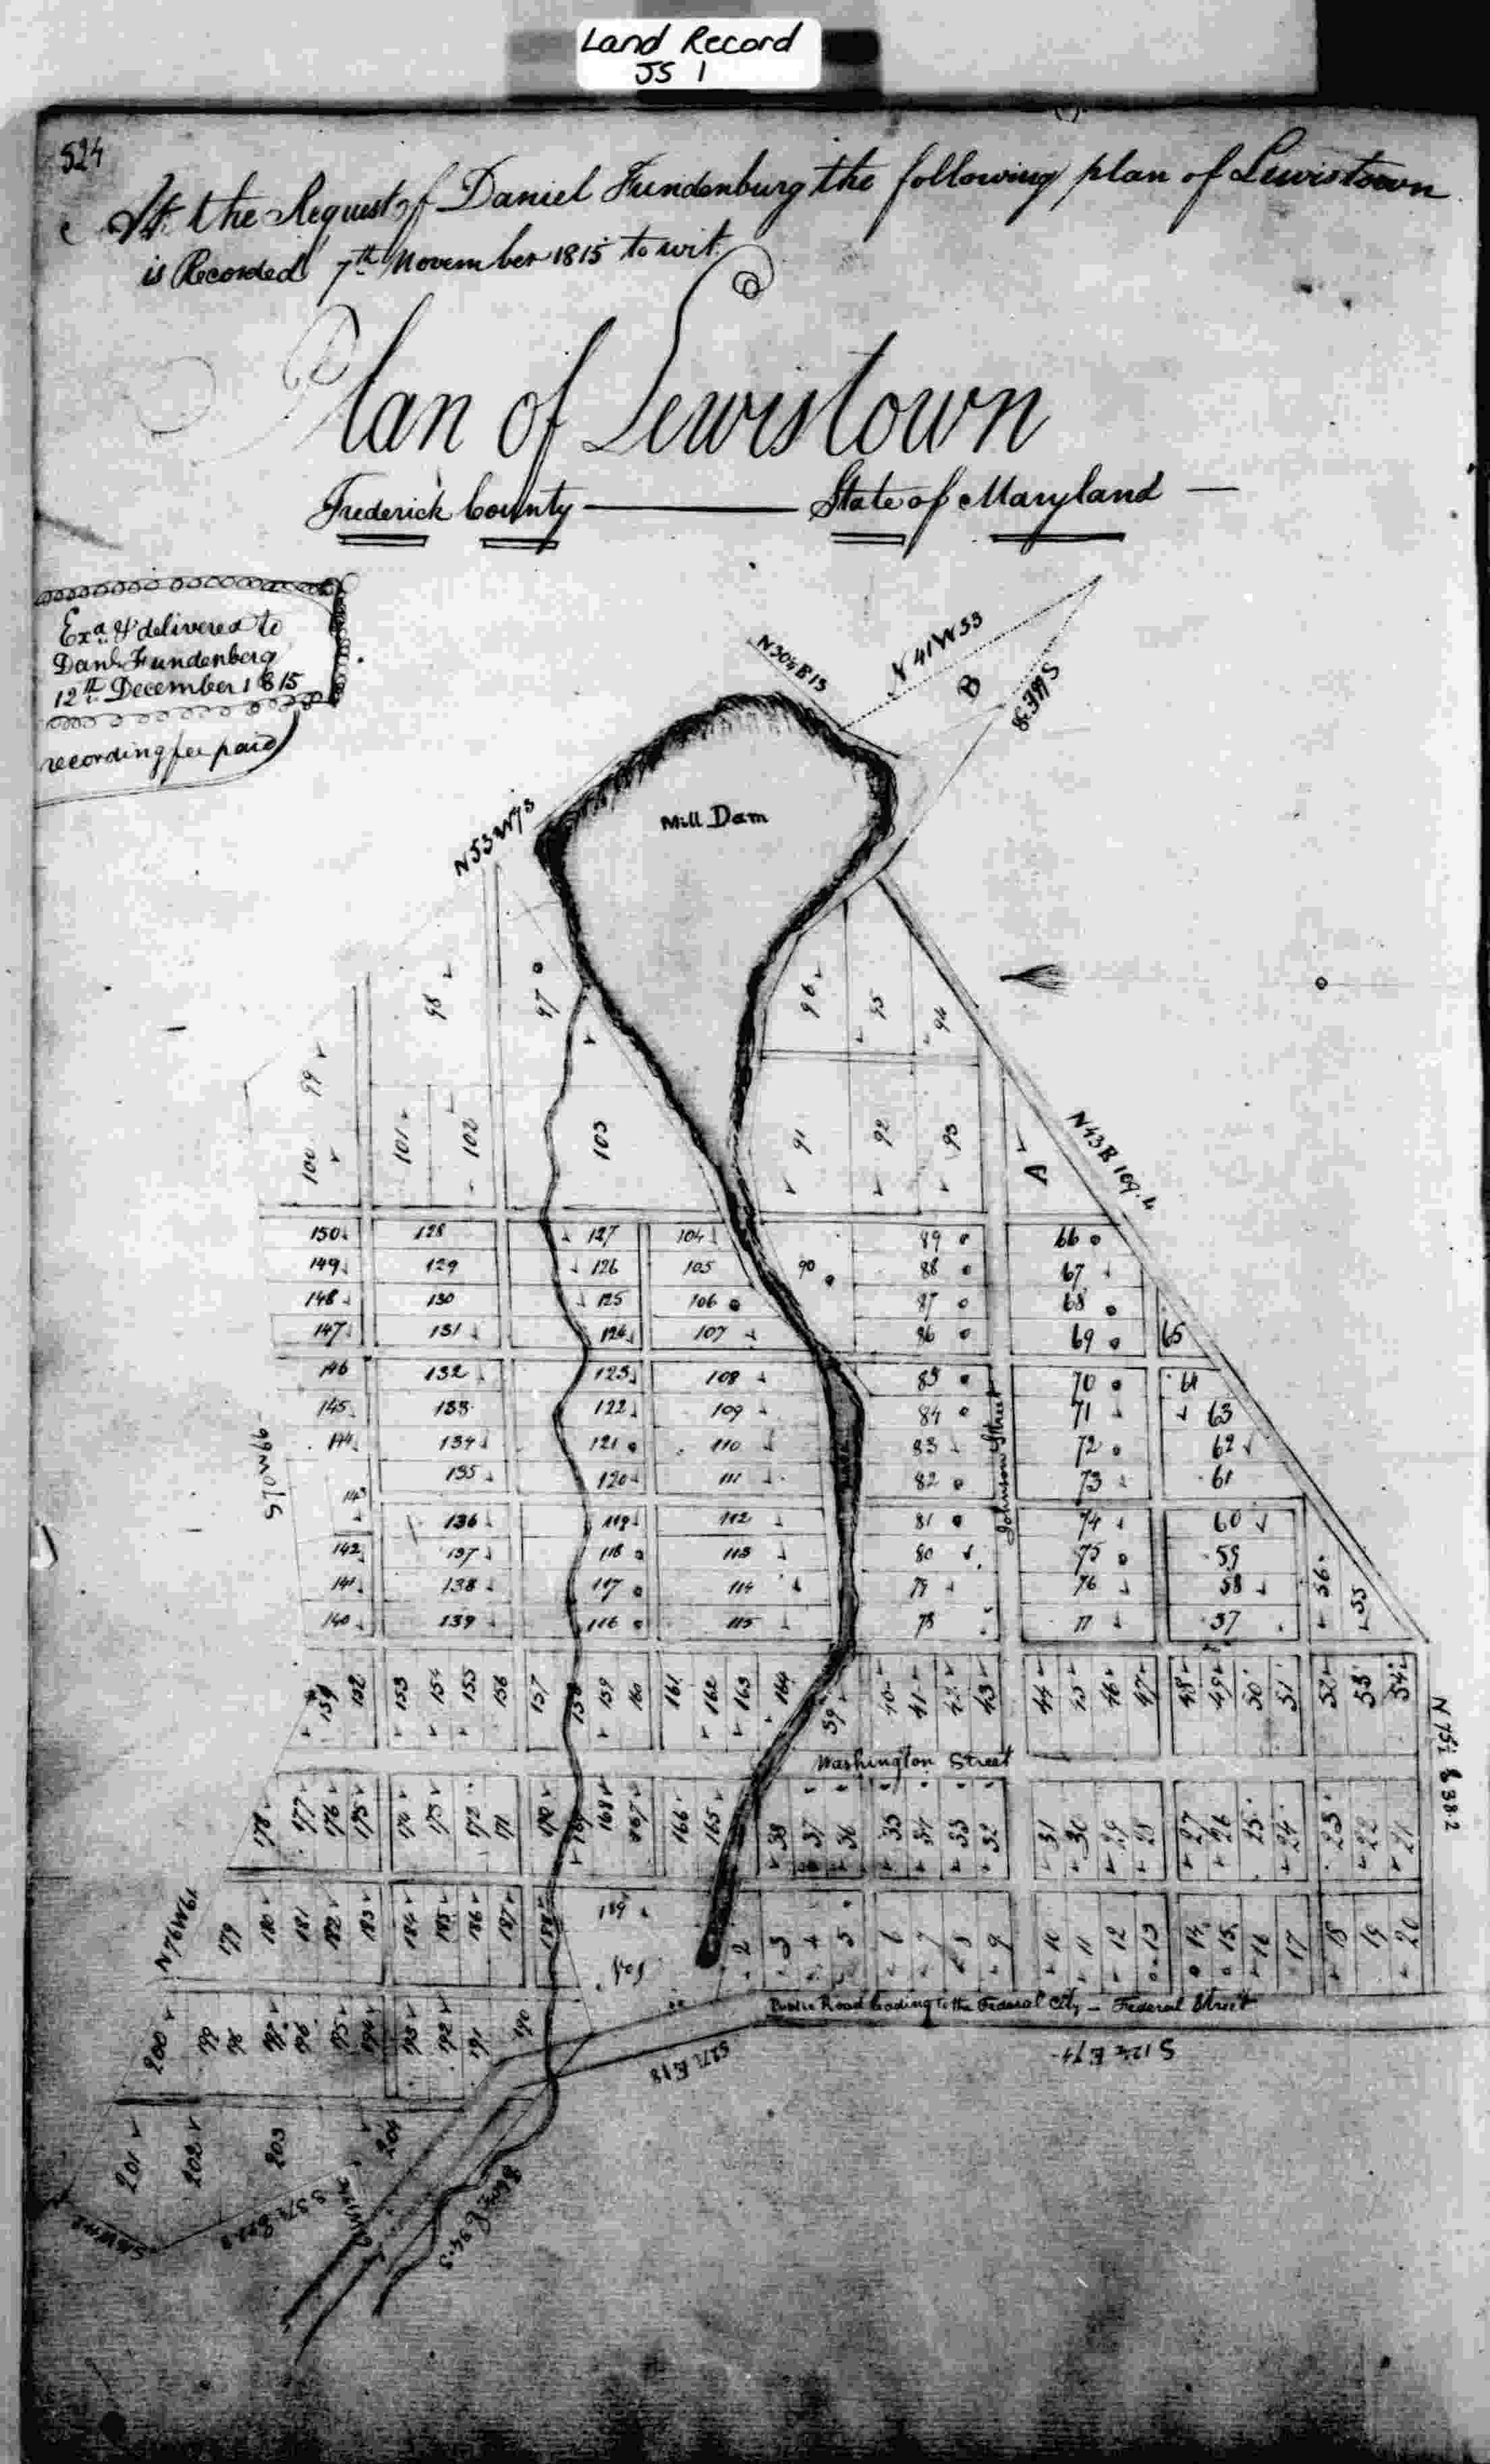 Land Record
JS 1
524
At the Request of Daniel Fundenburg the following plan of Lewistown
is Recorded 7th November 1815 to wit.
Plan of Lewistown
Frederick County State of Maryland
Exa. & delivered to
Danl. Fundenberg
12th December 1815
recording fee paid
N 41 W 53
B
Mill Dam
N 53 W 73
96 95 94
98 97
99
100 101 102 103 91 92 93 A
N 43 E 109.4
150 128 127 104 89 66
149 129 126 105 90 88 67
148 130 125 106 87 68
147 131 124 107 86 69 65
146 132 123 108 85 70 64
145 133 122 109 84 71 63
144 134 121 110 83 72 62
135 120 111 82 73 61
143 136 119 112 81 74 60
142 137 118 113 80 75 59
141 138 117 114 79 76 58 56 55
140 139 116 115 78 77 57
Johnson Street
151 152 153 154 155 156 157 158 159 160 161 162 163 164 39 40 41 42 43 44 45 46 47 48 49 50 51 52 53 54
Washington Street
178 177 176 175 174 173 172 171 170 169 168 167 166 165 38 37 36 35 34 33 32 31 30 29 28 27 26 25 24 23 22 21
N 76 W 61
179 180 181 182 183 184 185 186 187 188 189 2 3 4 5 6 7 8 9 10 11 12 13 14 15 16 17 18 19 20
Lot
Public Road leading to the Federal City – Federal Street
200 199 198 197 196 195 194 193 192 191 190
S 12½ E 74
S 27½ E 18
201 202 203 204